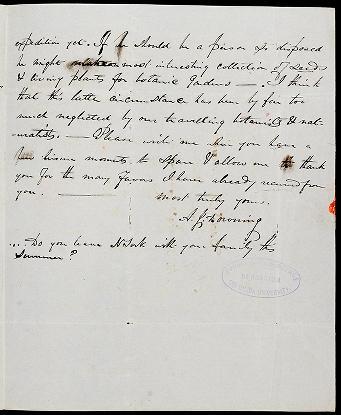 expedition yet. If he should be a person so disposed
he might make a most interesting collection of seeds
& living plants for botanic gardens —. I think
that this latter circumstance has been by far too
much neglected by our travelling botanists & nat-
uralists. — Please write me when you have a
few leisure moments to spare & allow me to thank
you for the many favors I have already received from
you. —
most truly yours
A. J. Downing
... Do you leave N York with your family this
Summer?